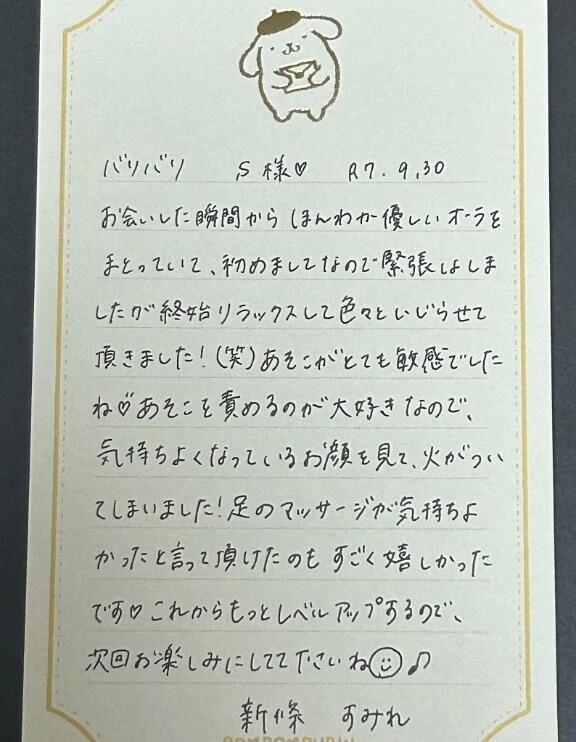 バリバリ S様♡ R7.9.30
お会いした瞬間からほんわか優しいオーラを
まとっていて、初めましてなので緊張はしま
したが終始リラックスして色々といじらせて
頂きました!(笑)あそこがとても敏感でした
ね♡あそこを責めるのが大好きなので、
気持ちよくなっているお顔を見て、火がつい
てしまいました!足のマッサージが気持ちよ
かったと言って頂けたのもすごく嬉しかった
です♡これからもっとレベルアップするので、
次回お楽しみにしてて下さいね☺♫
新條 すみれ
POMPOMPURIN